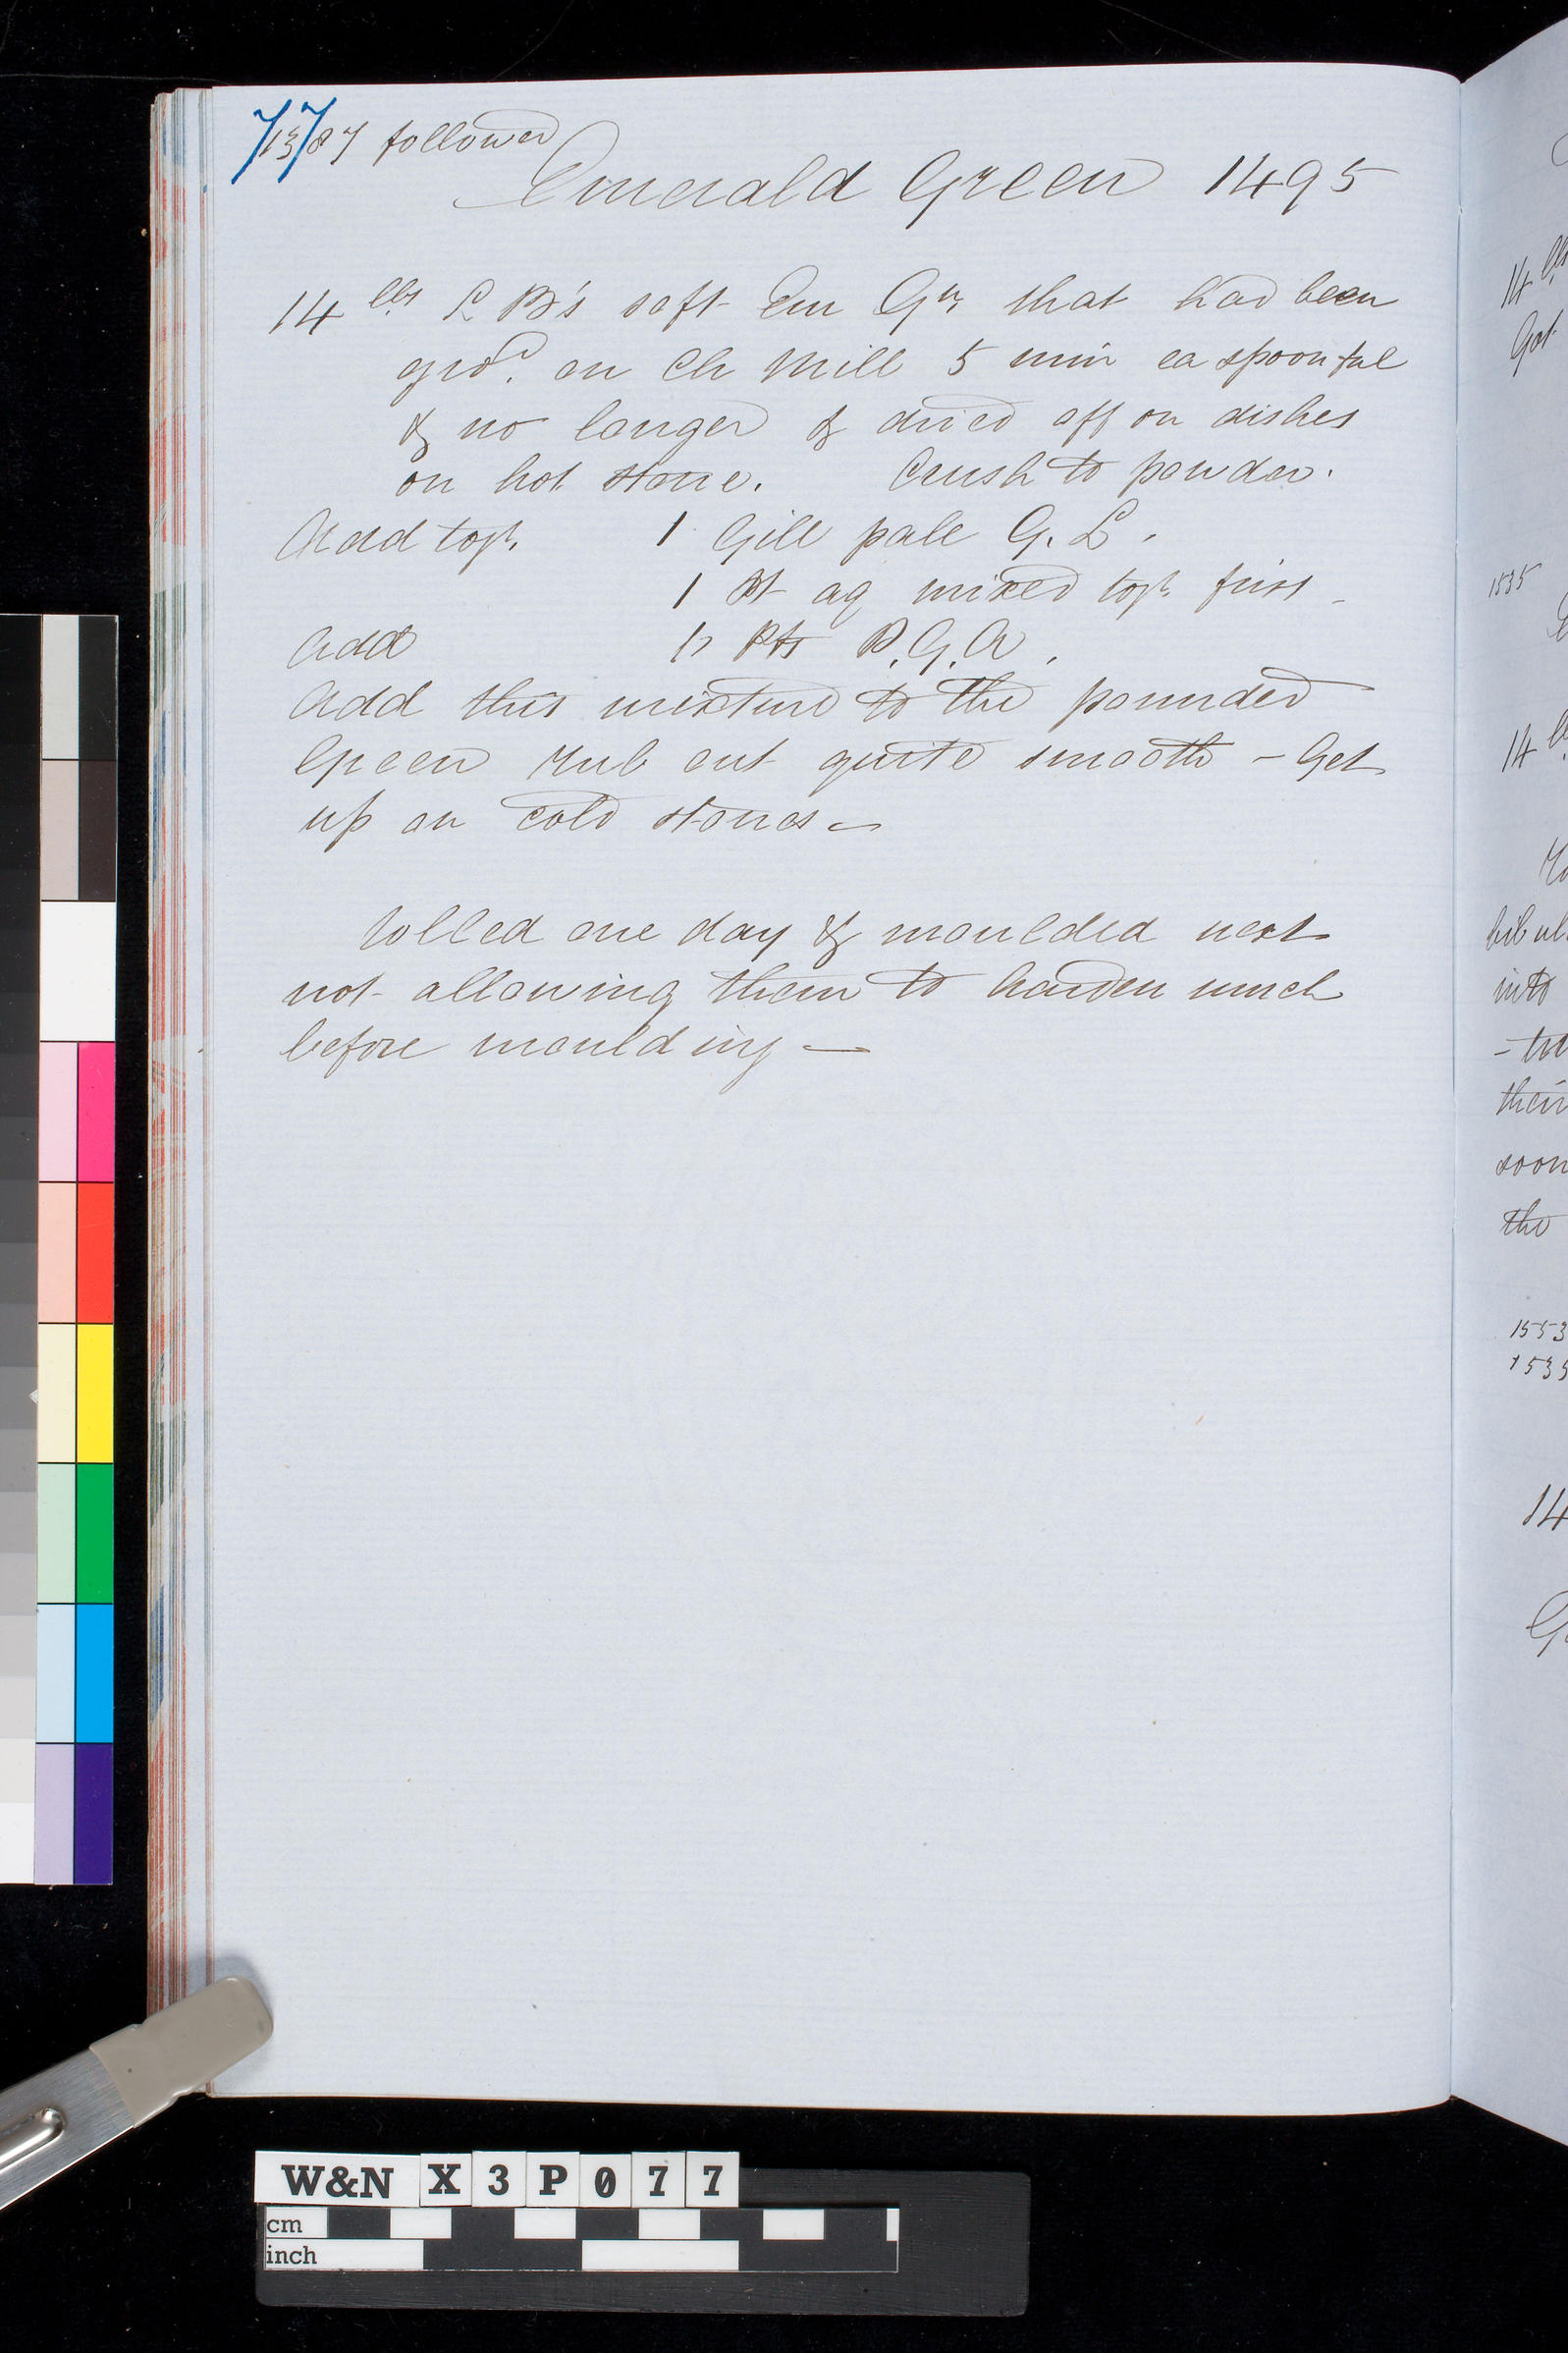 7/13/87 followed
Emerald Green 1495
14 lbs L B's soft Em Grn that had been
grd. on Ch Mill 5 min ea spoonful
& no longer & dried off on dishes
on hot stone. Crush to powder.
Add togr. 1 Gill pale G. L.
1 Pt aq mixed togr. first
Add Pts P. G. A.
Add this mixture to the pounded
Green rub out quite smooth – Get
up on cold stones –
rolled one day & moulded next
not allowing them to harden much
before moulding —
14
Got
1535
14
into
their
soon
the
1553
1535
14
W&N X3P077
cm
inch